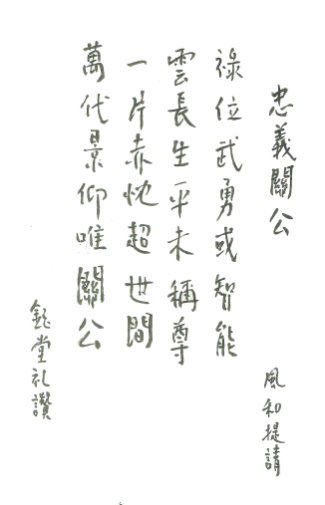 忠義關公
風和提請
祿位武勇或智能
雲長生平未稱尊
一片赤忱超世間
萬代景仰唯關公
鈺堂礼讚